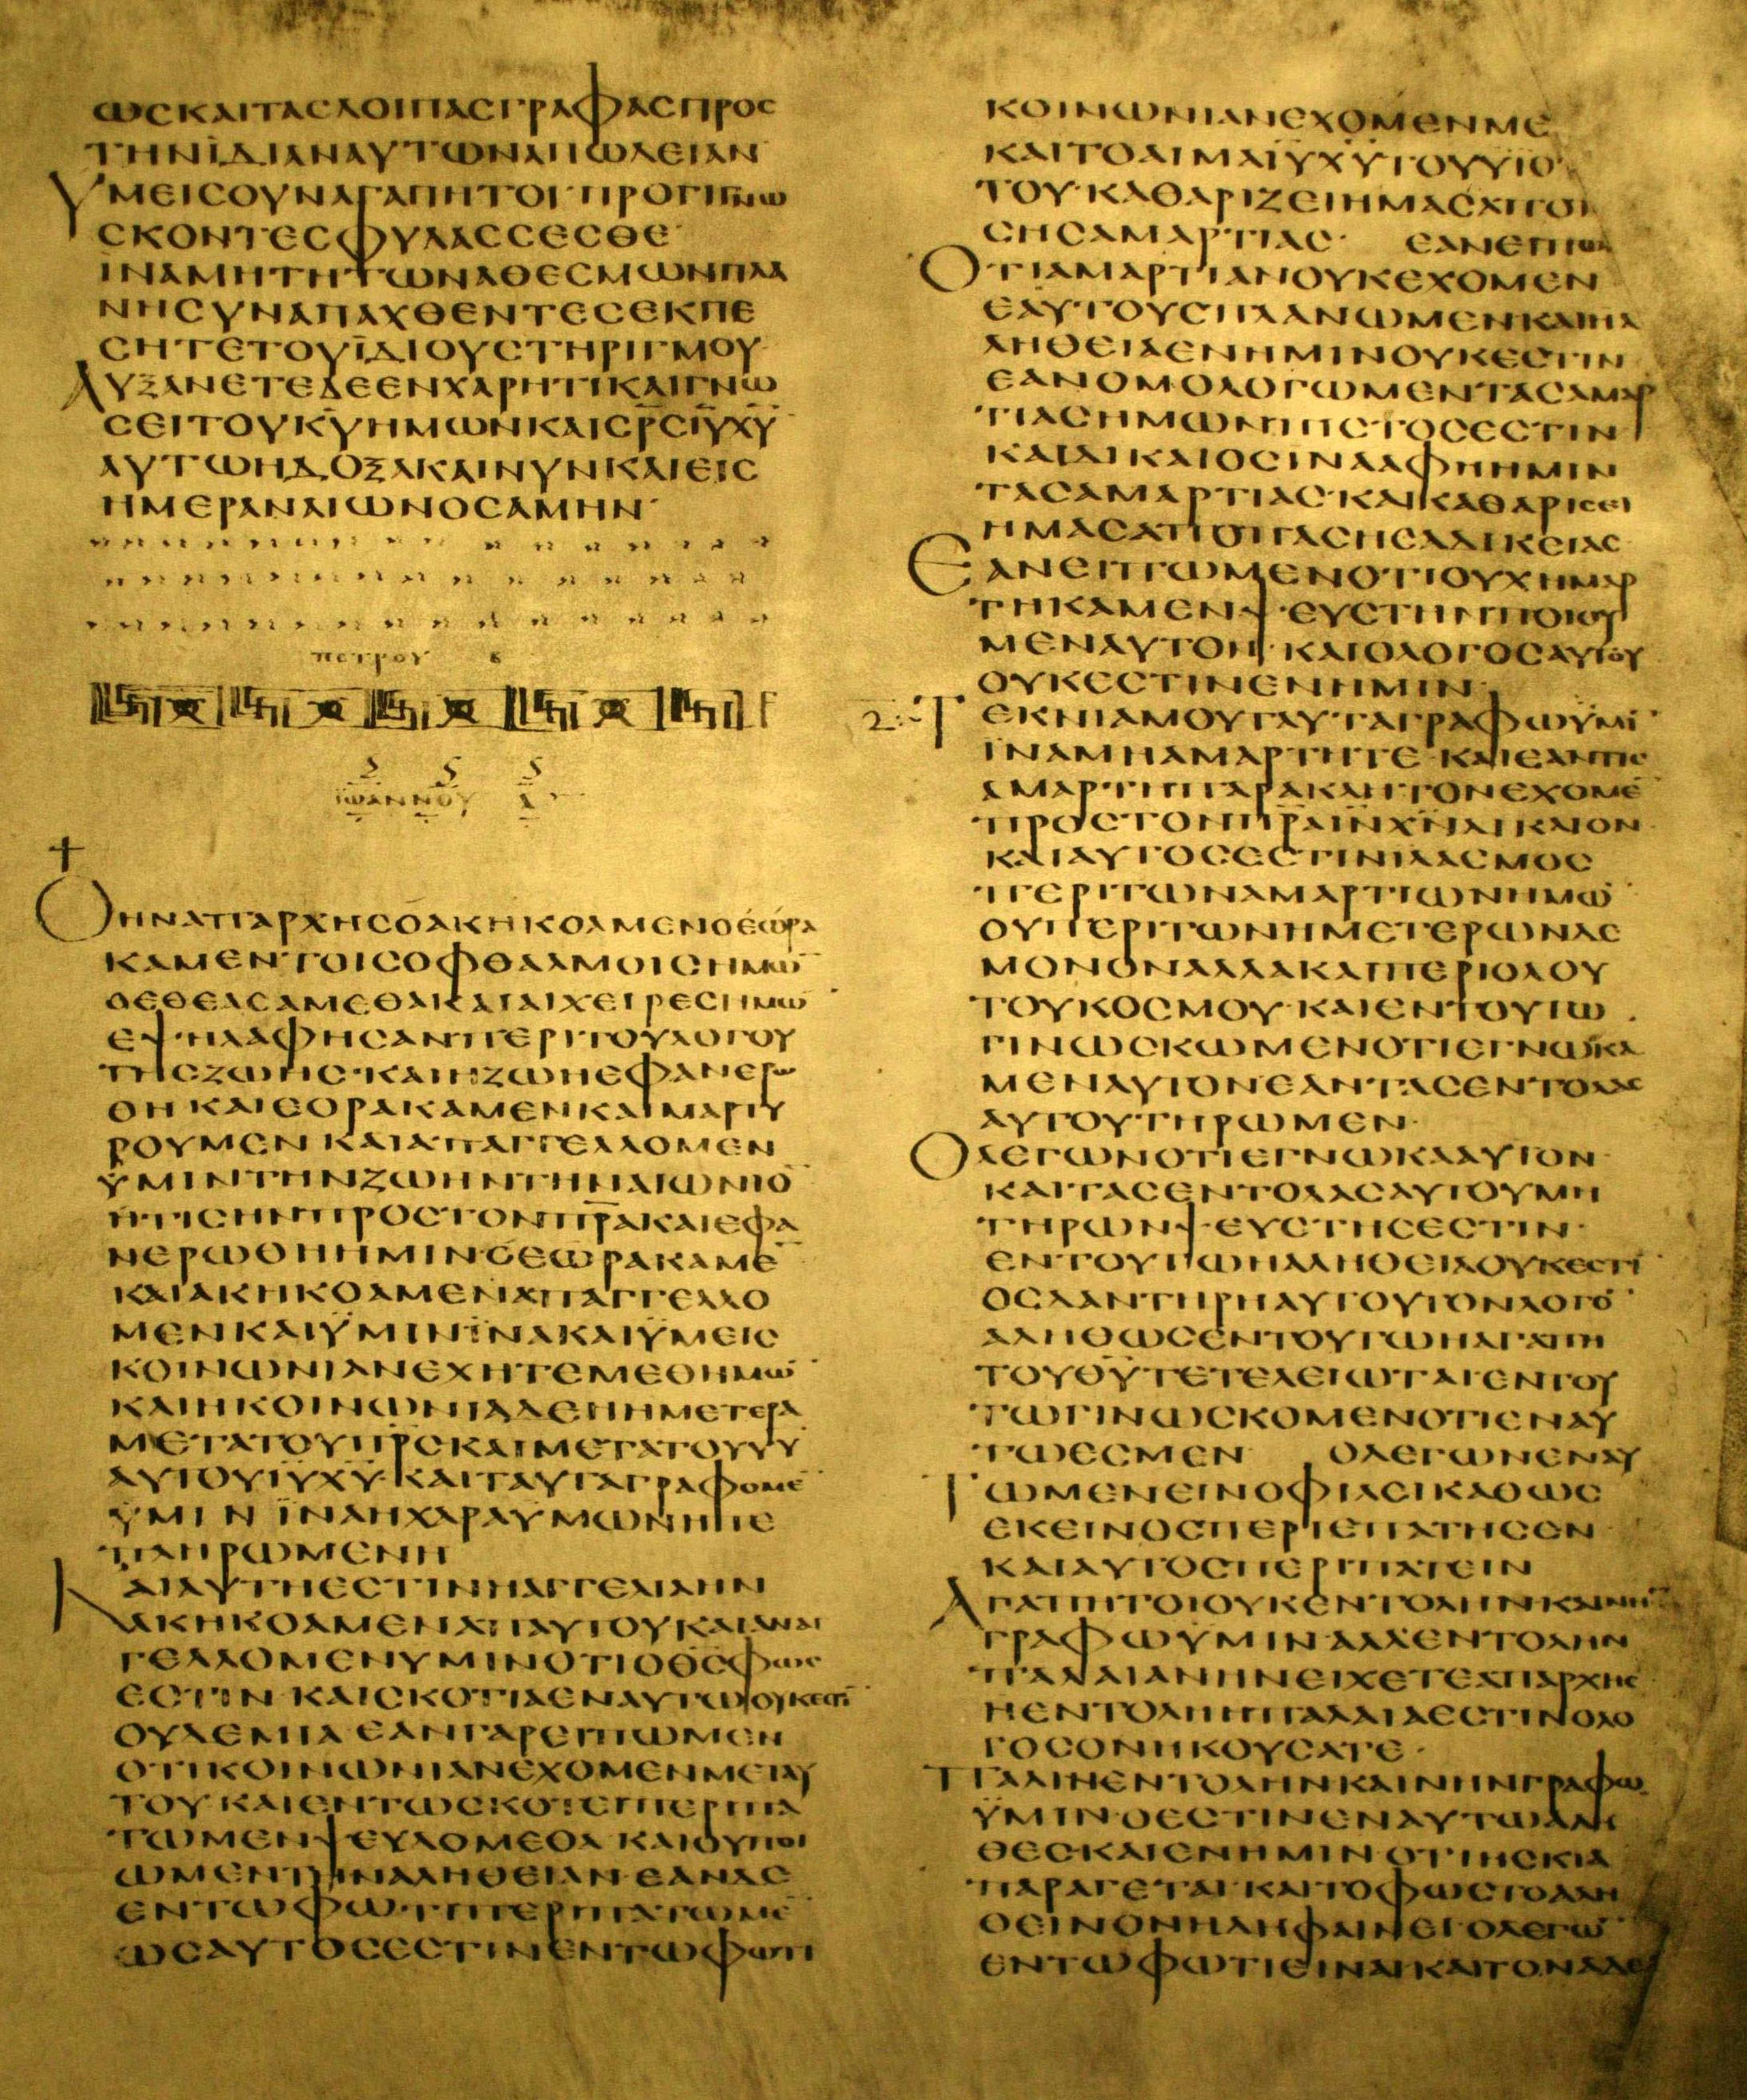 ωςκαιταςλοιπαςγραφαςπρος
τηνϊδιαναυτωναπωλειαν
Υμειςουναγαπητοι·προγινω
σκοντεςφυλασσεσθε·
ϊναμητητωναθεσμωνπλα
νησυναπαχθεντεςεκπε
σητετουϊδιουστηριγμου·
Αυξανετεδεενχαρητικαιγνω
σειτουκ̅υ̅ημωνκαισ̅ρ̅ς̅ι̅υ̅χ̅υ̅·
αυτωηδοξακαινυνκαιεις
ημεραναιωνοςαμην·
πετρου β
ιωαννου α
Οηναπαρχηςοακηκοαμενοεωρα
καμεντοιςοφθαλμοιςημω̅
οεθεασαμεθακαιαιχειρεςημω̅
εψηλαφησανπεριτουλογου
τηςζωης·καιηζωηεφανερω
θηκαιεορακαμενκαιμαρτυ
ρουμενκαιαπαγγελλομεν
ϋμιντηνζωηντηναιωνιο̅
ητιςηνπροςτονπ̅ρ̅ακαιεφα
νερωθηημινοεωρακαμε̅
καιακηκοαμεναπαγγελλο
μενκαιϋμινϊνακαιϋμεις
κοινωνιανεχητεμεθημω̅
καιηκοινωνιαδεηημετερα
μετατουπ̅ρ̅ςκαιμετατουυ̅υ̅
αυτουι̅υ̅χ̅υ̅·καιταυταγραφομε̅
ϋμινϊναηχαραυμωνηπε
πληρωμενη
Καιαυτηεστινηαγγελιαην
ακηκοαμεναπαυτουκαιαναγ
γελλομενυμινοτιοθ̅ς̅φως
εστινκαισκοτιαεναυτωουκεστι̅
ουδεμιαεανγαρειπωμεν
οτικοινωνιανεχομενμεταυ
τουκαιεντωσκοτειπεριπα
τωμενψευδομεθακαιουποι
ωμεντηναληθειαν·εανδε
εντωφωτιπεριπατωμε̅
ωςαυτοςεστινεντωφωτι
κοινωνιανεχομενμε
καιτοαιμαι̅υ̅χ̅υ̅τουυιο
του·καθαριζειημαςαποπα
σηςαμαρτιας· εανειπωμ
Οτιαμαρτιανουκεχομεν
εαυτουςπλανωμενκαιηα
ληθειαενημινουκεστιν
εανομολογωμενταςαμαρ
τιαςημωνπιστοςεστιν
καιδικαιοςιναφηημιν
ταςαμαρτιας·καικαθαρισει
ημαςαποπασηςαδικειας
Εανειπωμενοτιουχημαρ
τηκαμενψευστηνποιου
μεναυτον·καιολογοςαυτου
ουκεστινενημιν·
2 Τεκνιαμουταυταγραφωϋμι̅
ϊναμηαμαρτητε·καιεαντις
αμαρτηπαρακλητονεχομε̅
προςτονπ̅ρ̅αι̅ν̅χ̅ν̅δικαιον
καιαυτοςεστινιλασμος
περιτωναμαρτιωνημω̅
ουπεριτωνημετερωνδε
μονοναλλακαιπεριολου
τουκοσμου·καιεντουτω
γινωσκωμενοτιεγνωκα
μεναυτονεανταςεντολας
αυτουτηρωμεν·
Ολεγωνοτιεγνωκααυτον
καιταςεντολαςαυτουμη
τηρωνψευστηςεστιν·
εντουτωηαληθειαουκεστι̅
οςδαντηρηαυτουτονλογο̅
αληθωςεντουτωηαγαπη
τουθ̅υ̅τετελειωταιεντου
τωγινωσκομενοτιεναυ
τωεσμεν ολεγωνεναυ
Τωμενεινοφιλεικαθως
εκεινοςπεριεπατησεν
καιαυτοςπεριπατειν
Αγαπητοιουκεντοληνκαινην
γραφωϋμιναλλεντολην
παλαιανηνειχετεαπαρχης
ηεντοληηπαλαιαεστινολο
γοςονηκουσατε·
Παλινεντοληνκαινηνγραφω
ϋμινοεστινεναυτωαλη
θεςκαιενημινοτιησκια
παραγεταικαιτοφωςτοαλη
θεινονηδηφαινειολεγω̅
εντωφωτιειναικαιτοναδελ